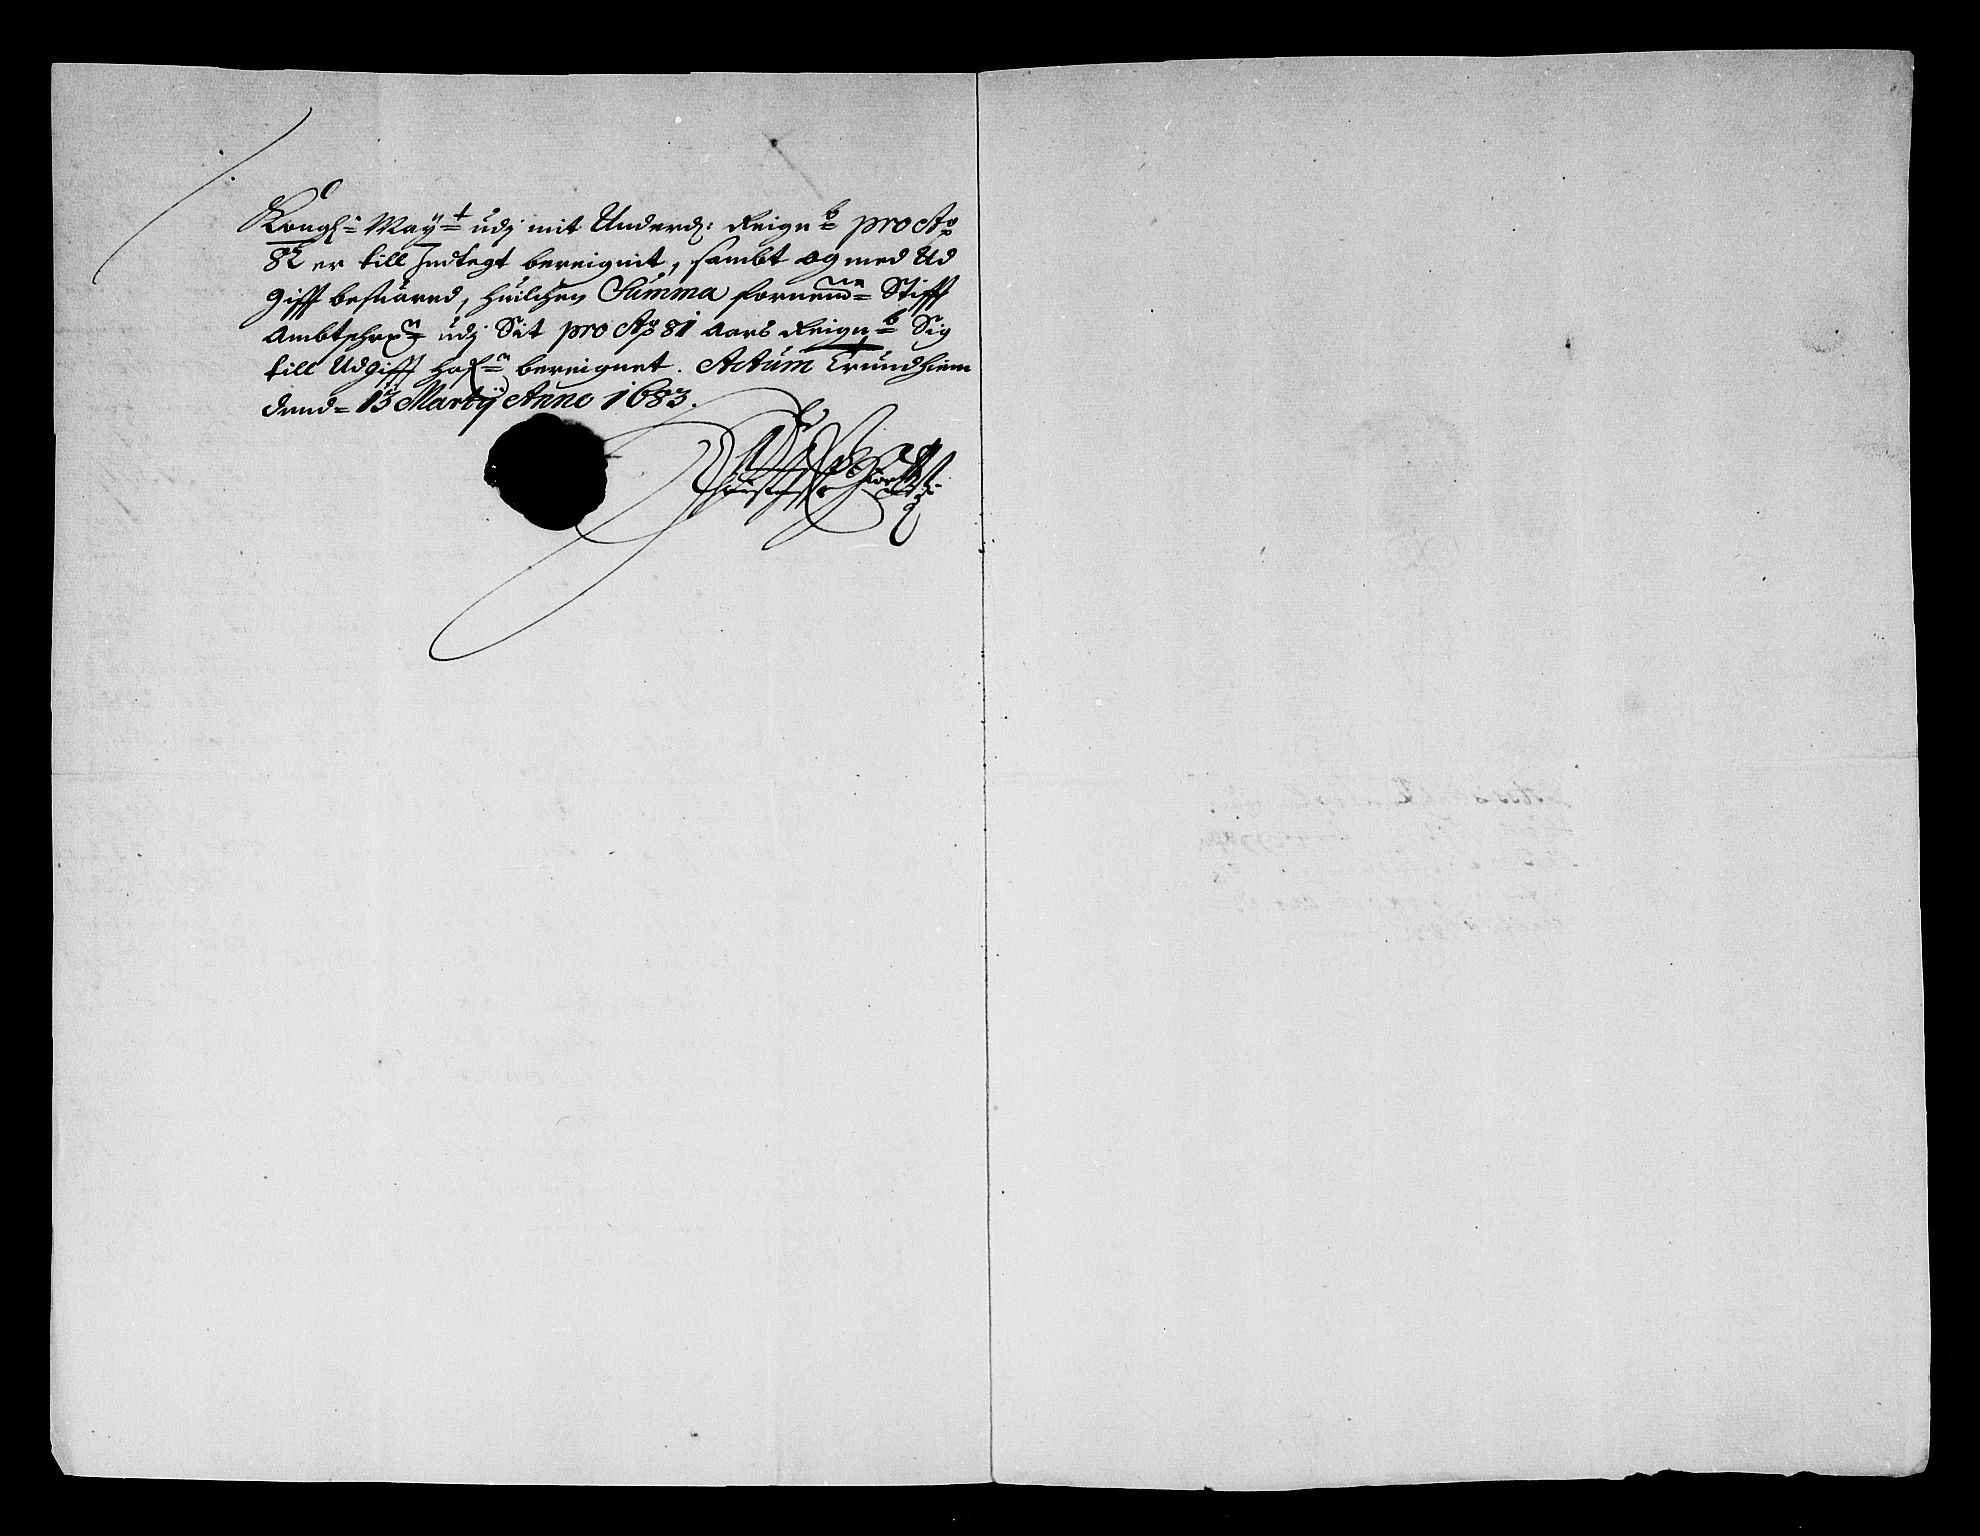 Kongl: May:t udj mit Underd: Reign:b pro Ao
82 er till Indtegt bereignit, sambt og med Ud
gifft besuared, huilchen Summa fornemde Stifft
Ambtschr udj Sit pro Ao 81 aars Reign:b Sig
till Udgifft hafr bereignet. Actum Trundhiem
dend 13 Martÿ Anno 1683.